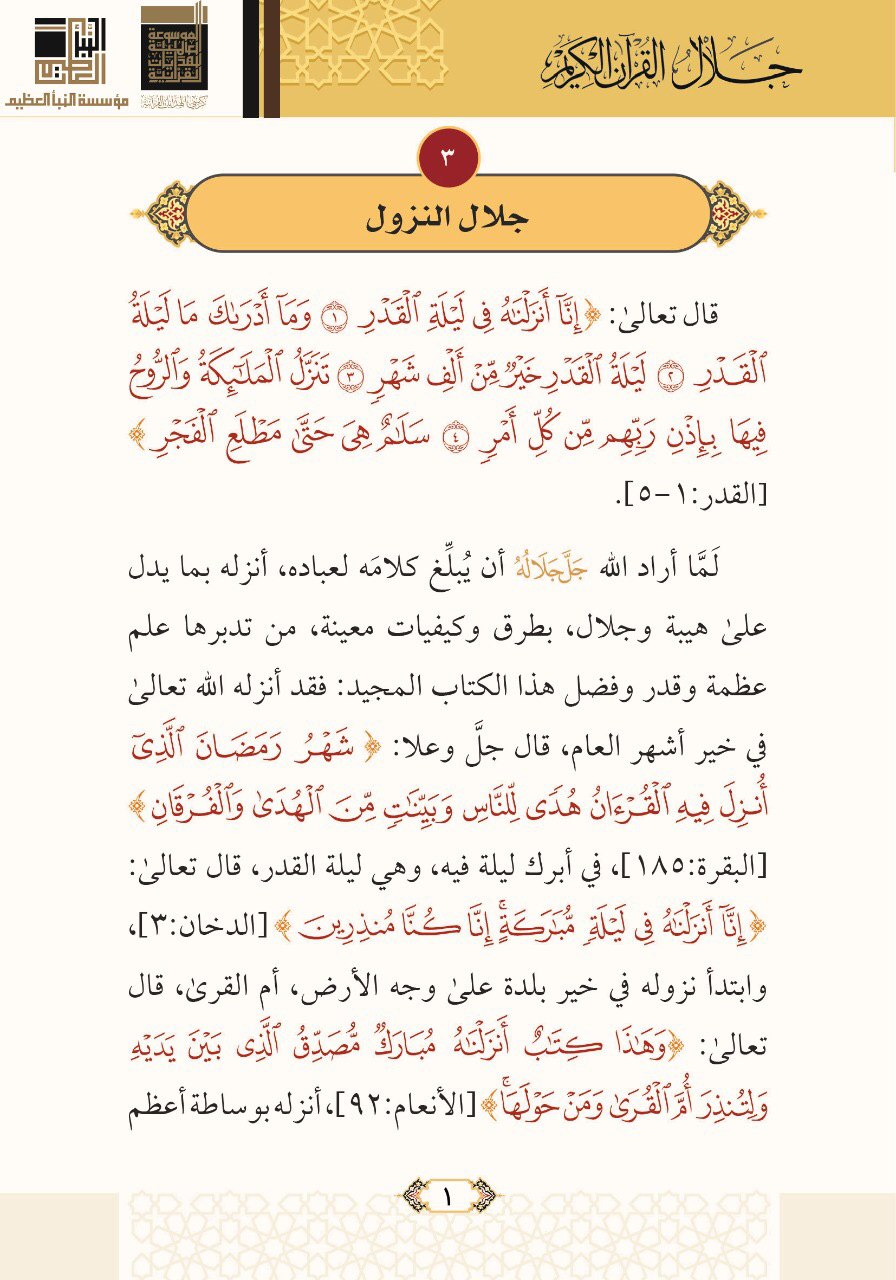 جلال القرآن الكريم
النبأ العظيم
مؤسسة النبأ العظيم
٣
جلال النزول
قال تعالىٰ: ﴿إِنَّآ أَنزَلۡنَٰهُ فِي لَيۡلَةِ ٱلۡقَدۡرِ ١ وَمَآ أَدۡرَىٰكَ مَا لَيۡلَةُ
ٱلۡقَدۡرِ ٢ لَيۡلَةُ ٱلۡقَدۡرِ خَيۡرٞ مِّنۡ أَلۡفِ شَهۡرٖ ٣ تَنَزَّلُ ٱلۡمَلَٰٓئِكَةُ وَٱلرُّوحُ
فِيهَا بِإِذۡنِ رَبِّهِم مِّن كُلِّ أَمۡرٖ ٤ سَلَٰمٌ هِيَ حَتَّىٰ مَطۡلَعِ ٱلۡفَجۡرِ﴾
[القدر:١-٥].
لَمَّا أراد الله جَلَّجَلَالُهُ أن يُبلِّغ كلامَه لعباده، أنزله بما يدل
علىٰ هيبة وجلال، بطرق وكيفيات معينة، من تدبرها علم
عظمة وقدر وفضل هذا الكتاب المجيد: فقد أنزله الله تعالىٰ
في خير أشهر العام، قال جلَّ وعلا: ﴿شَهۡرُ رَمَضَانَ ٱلَّذِيٓ
أُنزِلَ فِيهِ ٱلۡقُرۡءَانُ هُدٗى لِّلنَّاسِ وَبَيِّنَٰتٖ مِّنَ ٱلۡهُدَىٰ وَٱلۡفُرۡقَانِ﴾
[البقرة:١٨٥]، في أبرك ليلة فيه، وهي ليلة القدر، قال تعالىٰ:
﴿إِنَّآ أَنزَلۡنَٰهُ فِي لَيۡلَةٖ مُّبَٰرَكَةٍۚ إِنَّا كُنَّا مُنذِرِينَ﴾ [الدخان:٣]،
وابتدأ نزوله في خير بلدة علىٰ وجه الأرض، أم القرىٰ، قال
تعالىٰ: ﴿وَهَٰذَا كِتَٰبٌ أَنزَلۡنَٰهُ مُبَارَكٞ مُّصَدِّقُ ٱلَّذِي بَيۡنَ يَدَيۡهِ
وَلِتُنذِرَ أُمَّ ٱلۡقُرَىٰ وَمَنۡ حَوۡلَهَاۚ﴾ [الأنعام:٩٢]، أنزله بوساطة أعظم
١